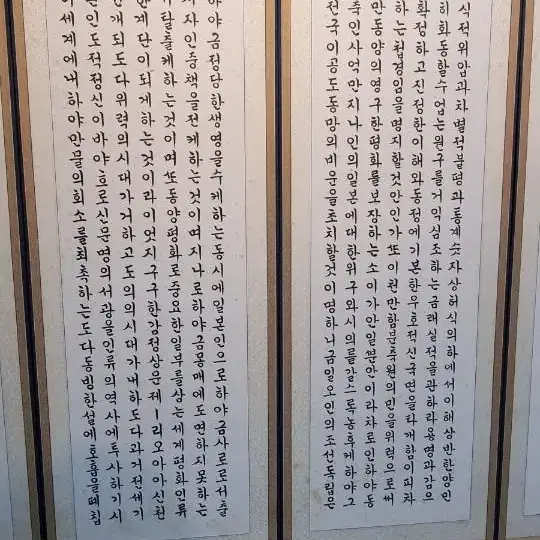 식적위압과차별적불평과통계숫자상허식의하에서이해상반한양인
히화동할수업는원구를거익심조하는금래실적을관하라용명과감으
확정하고진정한이해와동정에기본한우호적신국면을타개함이피차
하는첩경임을명지할것안인가또이천만함분축원의민을위력으로써
만동양의영구한평화를보장하는소이가안일분안이라차로인하야동
축인사억만지나인의일본에대한위구와시의를갈스록농후케하야그
전국이공도동망의비운을초치할것이명하니금일오인의조선독립은
하야금정당한생영을수케하는동시에일본인으로하야금사로로서출
지자인중책을전케하는것이며지나로하야금몽매에도면하지못하는
탈출케하는것이며또동양평화로중요한일부를삼는세계평화인류
한계단이되게하는것이라이엇지구구한감정상문제ㅣ리오아아신천
개되도다위력의시대가거하고도의의시대가내하도다과거전세기
인도적정신이바야흐로신문명의서광을인류의역사에투사하기시
이세계에내하야만물의회소를최촉하는도다동빙한설에호흡을폐칩